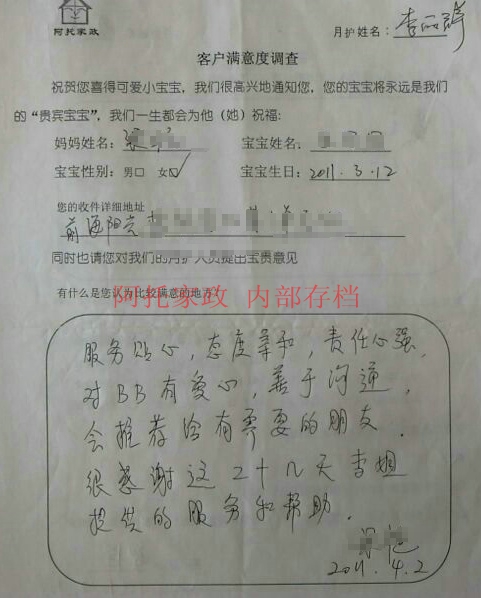 阿托家政
月护姓名：李丽
客户满意度调查
祝贺您喜得可爱小宝宝，我们很高兴地通知您，您的宝宝将永远是我们
的“贵宾宝宝”，我们一生都会为他（她）祝福：
妈妈姓名：梁 宝宝姓名：
宝宝性别：男□ 女☑ 宝宝生日：2011.3.12
您的收件详细地址
前海阳光
同时也请您对我们的月护人员提出宝贵意见
有什么是您认为比较满意的地方？
阿托家政 内部存档
服务贴心，态度亲和，责任心强，
对BB有爱心，善于沟通，
会推荐给有需要的朋友．
很感谢这二十几天李姐
提供的服务和帮助．
2011.4.2